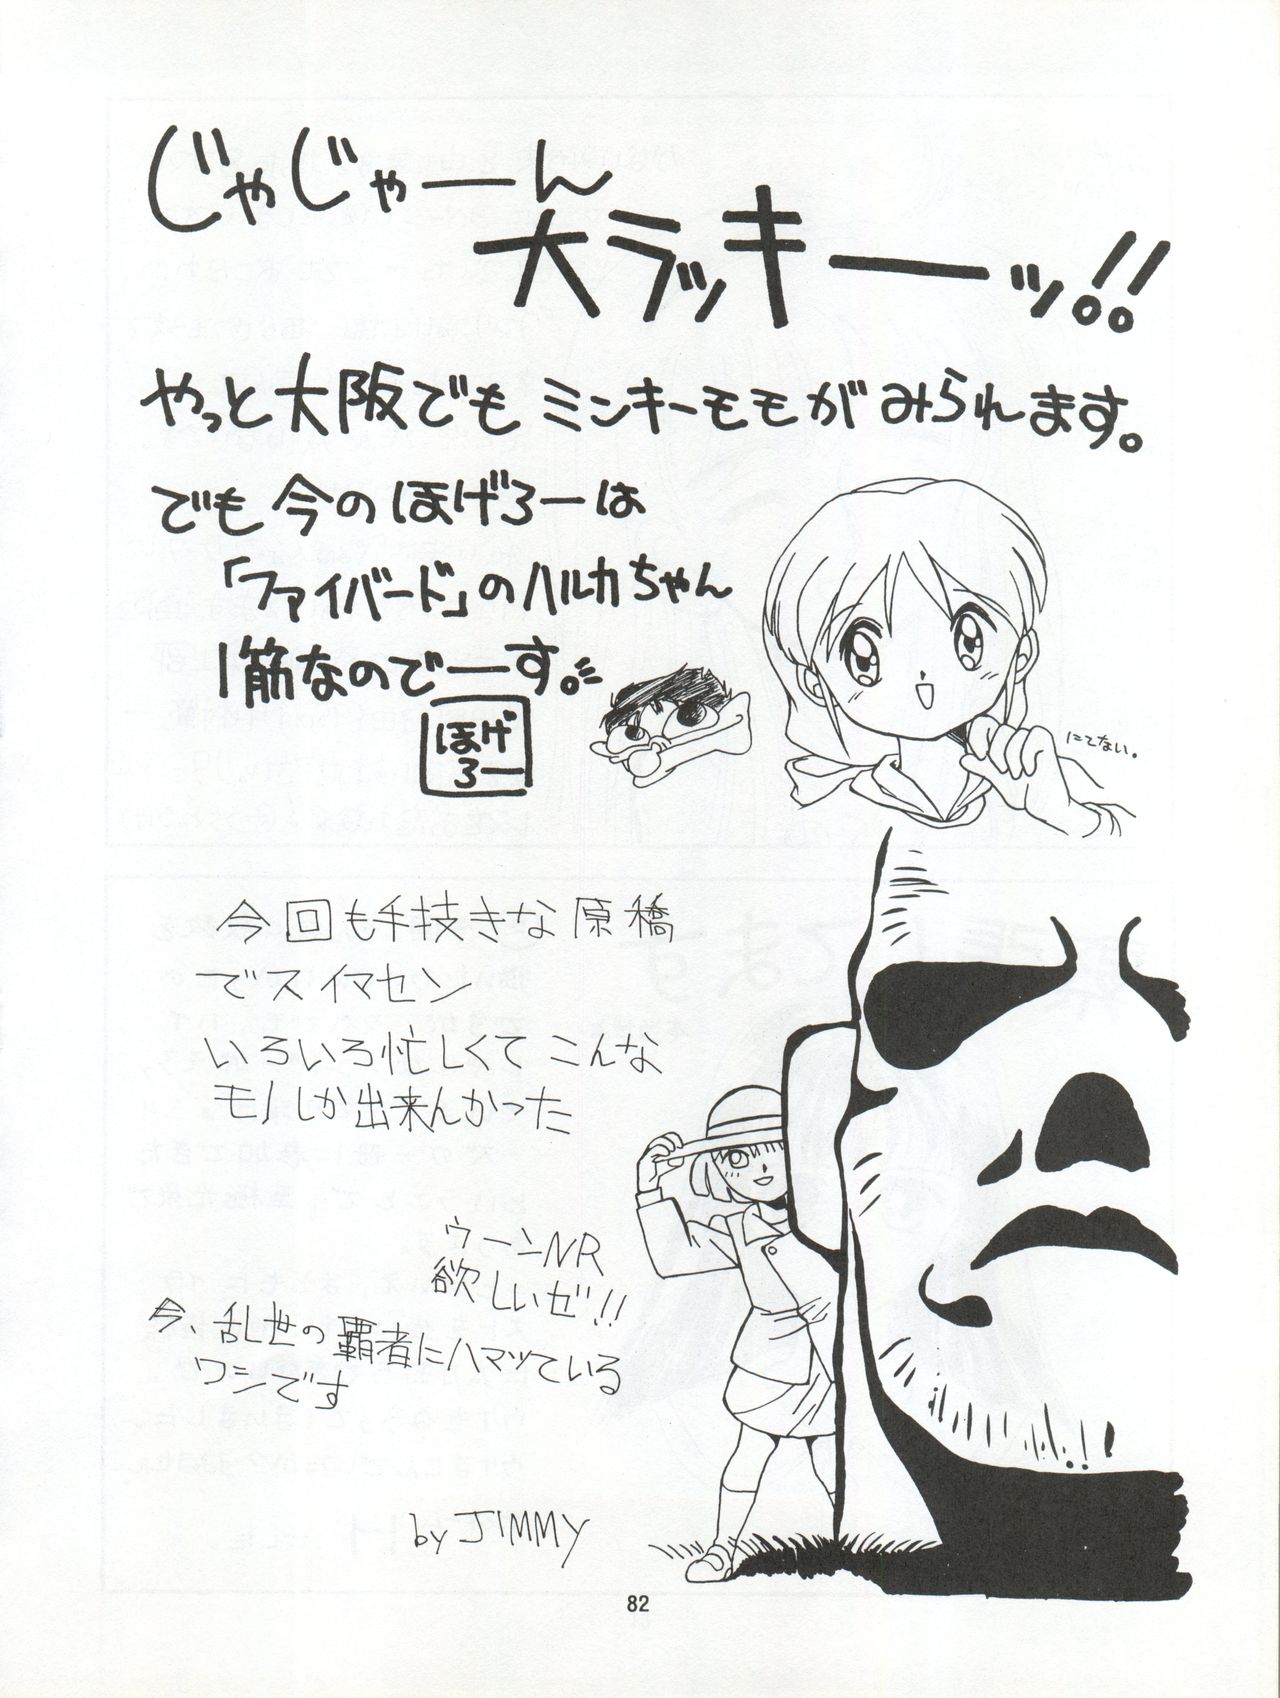 じゃじゃーん
大ラッキーッ!!
やっと大阪でもミンキーモモがみられます。
でも今のほげろーは
「ファイバード」のハルカちゃん
1筋なのでーす。
ほげ
ろー
にてない。
今回も手技きな原稿
でスイマセン
いろいろ忙しくてこんな
モノしか出来んかった
ウーンNR
欲しいゼ!!
今、乱世の覇者にハマッている
ワシです
by JIMMY
82